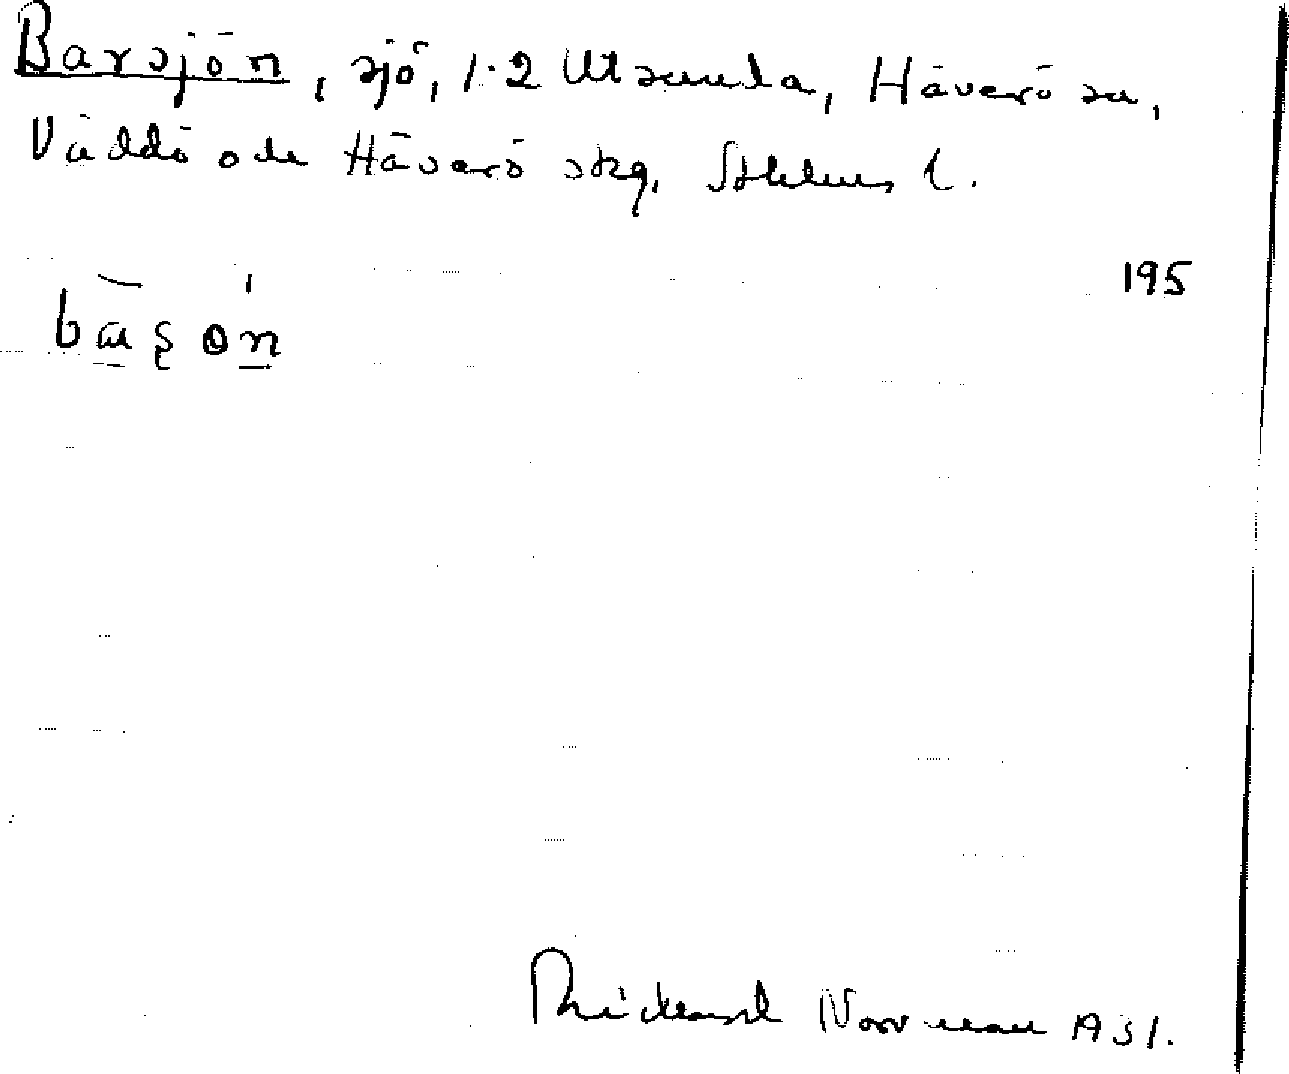 Barsjön, sjö, 1.2 Utsunda, Häverö sn,
Väddö och Häverö skg, Sthlms l.
195
Rickard Norrman 1931.